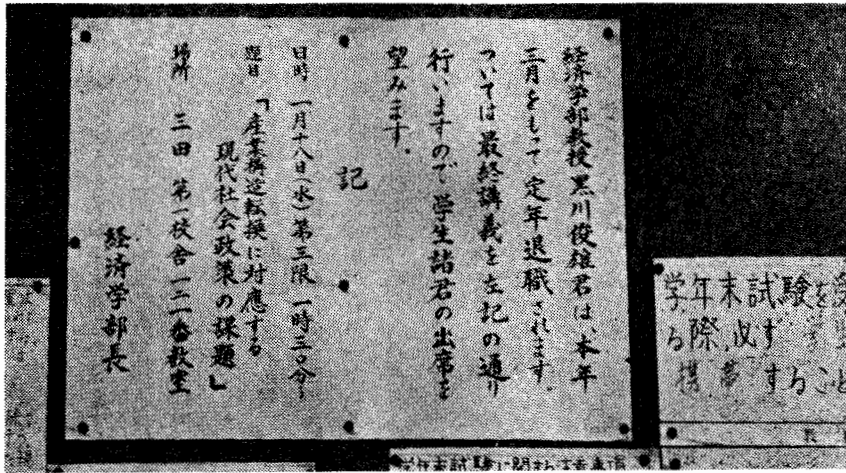 経済学部教授黒川俊雄君は、本年
三月をもって定年退職されます。
ついては最終講義を左記の通り
行いますので学生諸君の出席を
望みます。
記
日時 一月十八日(水)第三限 一時三〇分〜
題目 「産業構造転換に対応する
現代社会政策の課題」
場所 三田 第一校舎一二一番教室
経済学部長
学年末試験を受
る際、必ず
携帯すること
学年末試験に関する注意事項